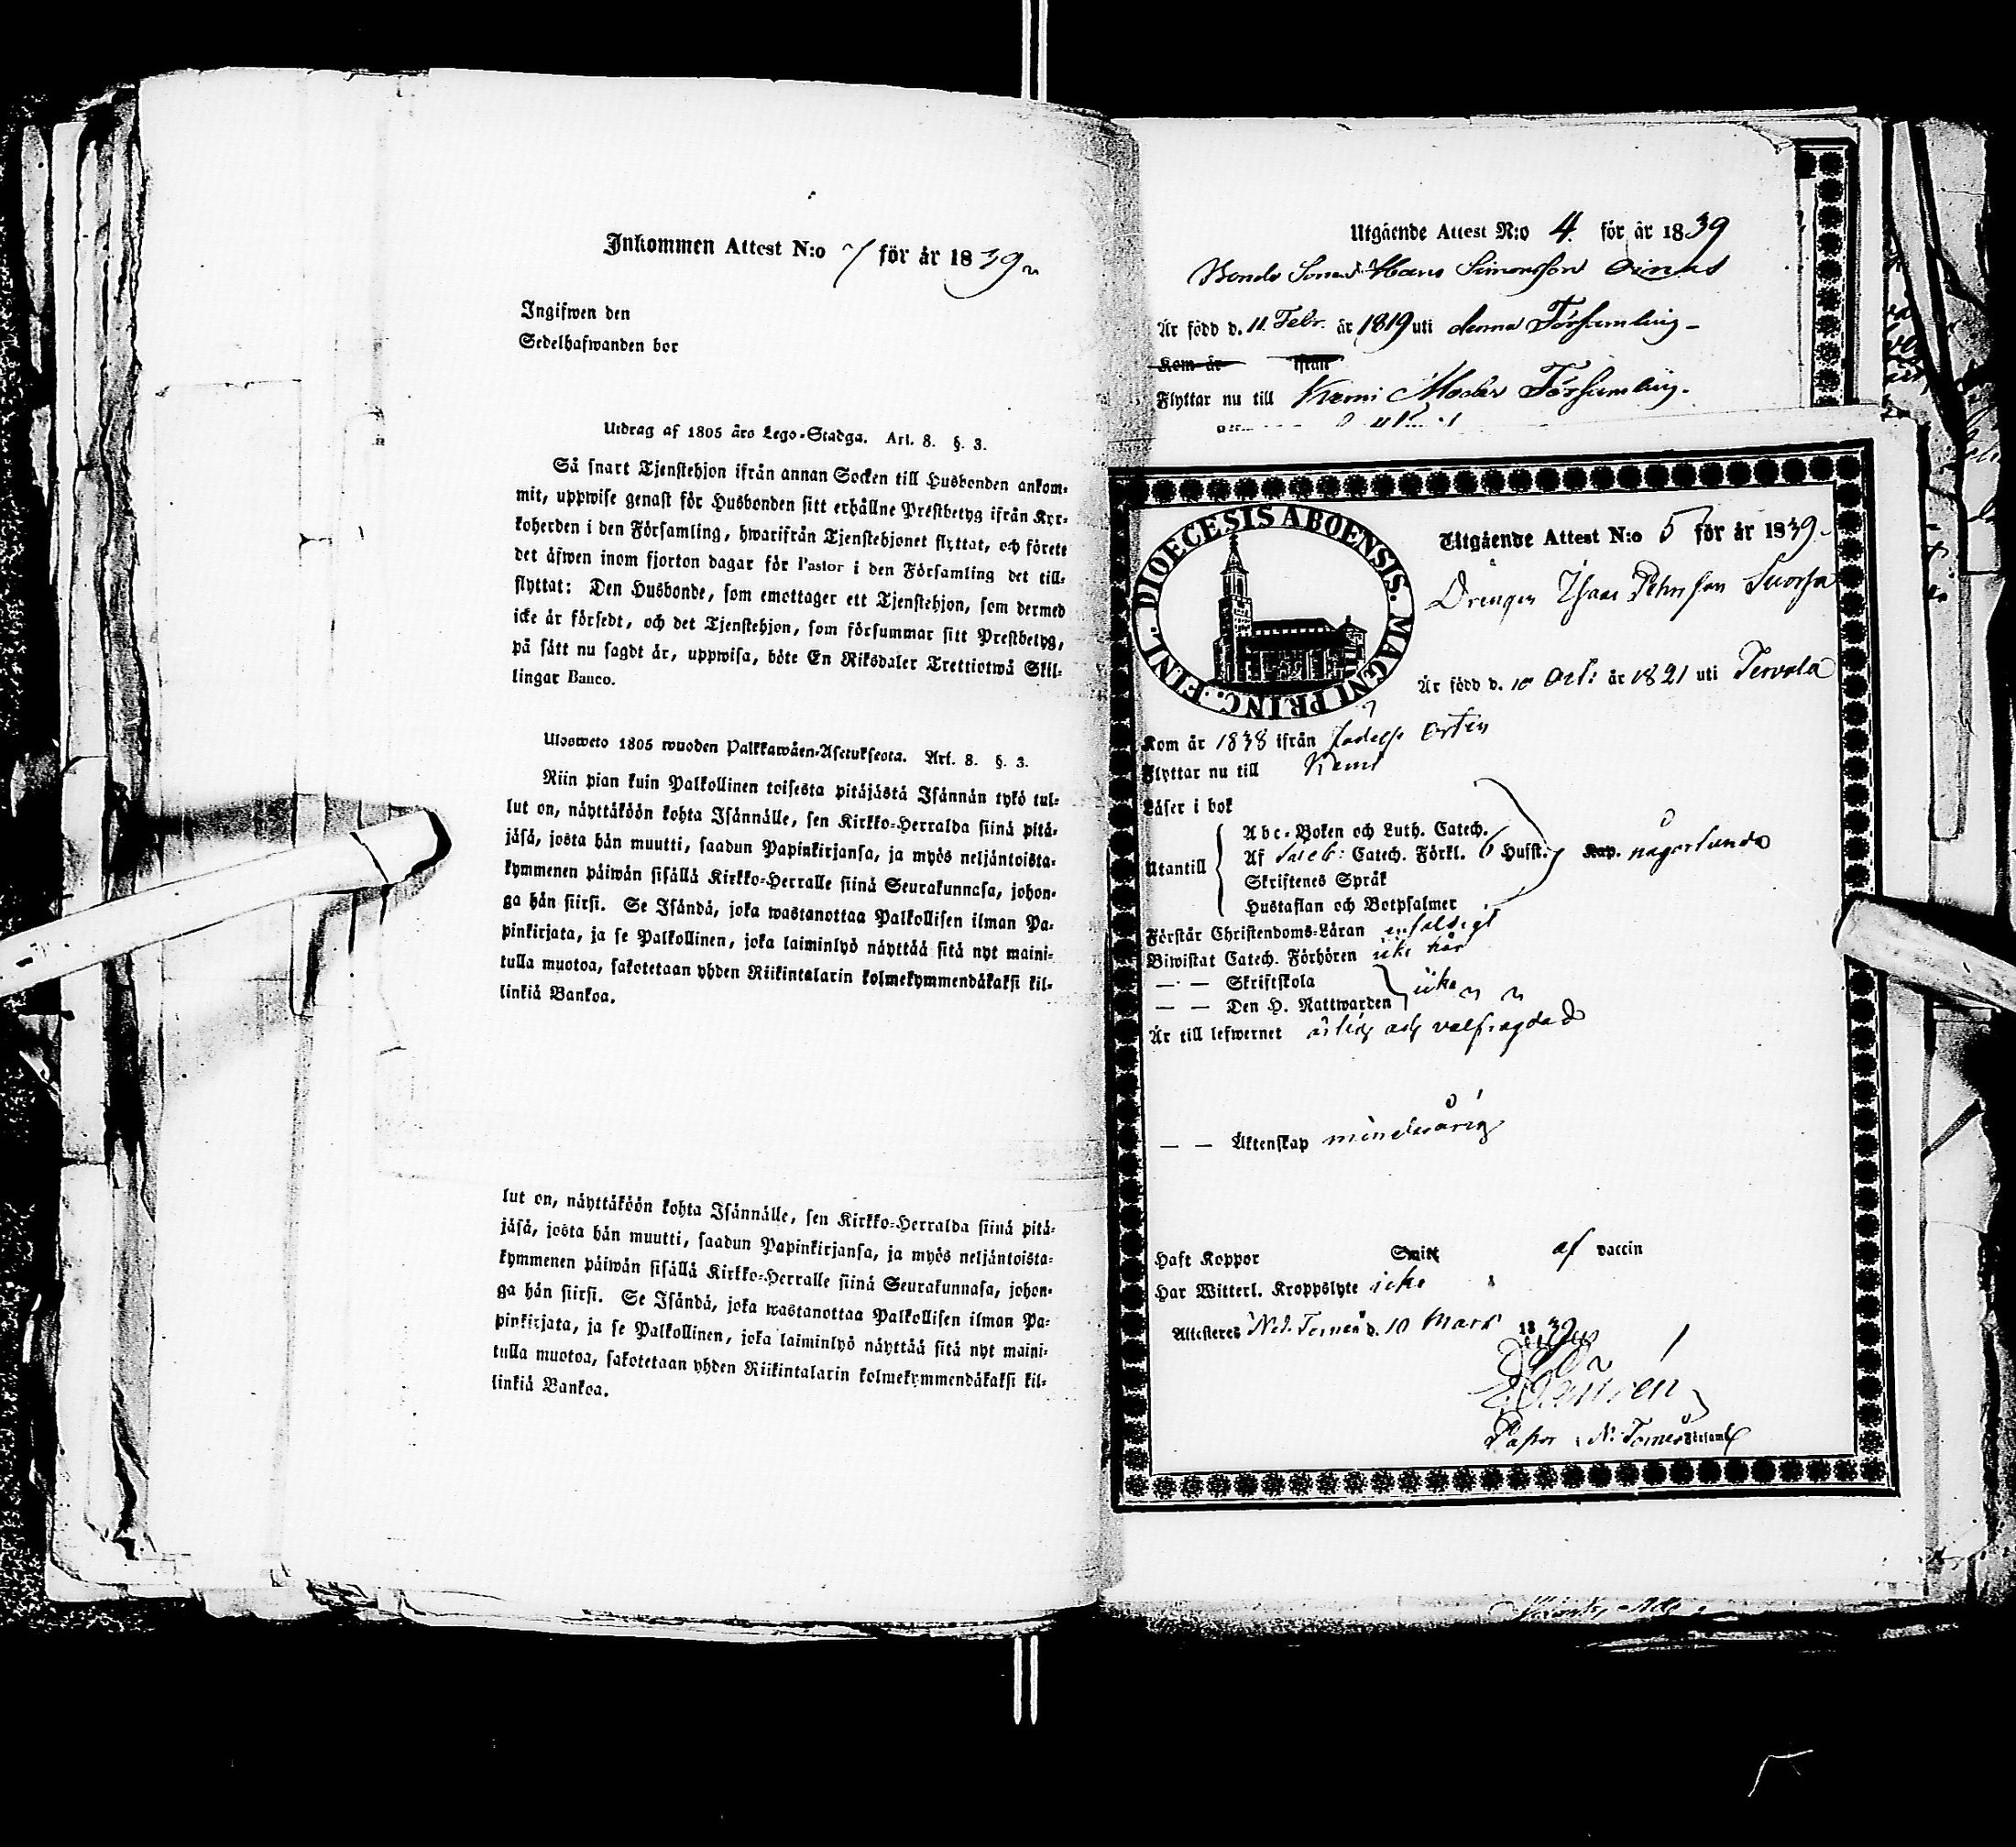 Inkommen Attest N:o 7 för år 1839
Ingifwen den
Sedelhafwanden bor
Utdrag af 1805 års Lego-Stadga. Art. 8. §. 3.
Så snart Tjenstehjon ifrån annan Socken till Husbonden ankom-
mit, uppwise genast för Husbonden sitt erhållne Prestbetyg ifrån Kyr-
koherden i den Församling, hwarifrån Tjenstehjonet flyttat, och förete
det äfwen inom fjorton dagar för Pastor i den Församling det till-
flyttat: Den Husbonde, som emottager ett Tjenstehjon, som dermed
icke är försedt, och det Tjenstehjon, som försummar sitt Prestbetyg,
på sätt nu sagdt är, uppwisa, böte En Riksdaler Trettiotwå Skil-
lingar Banco.
Ulosweto 1805 wuoden Palkkawäen-Asetuksesta. Art. 8. §. 3.
Niin pian kuin Palkollinen toisesta pitäjästä Isännän tykö tul-
lut on, näyttäköön kohta Isännälle, sen Kirkko-Herralda siinä pitä-
jäsä, josta hän muutti, saadun Papinkirjansa, ja myös neljäntoista-
kymmenen päiwän sisällä Kirkko-Herralle siinä Seurakunnasa, johon-
ga hän siirsi. Se Isändä, joka wastanottaa Palkollisen ilman Pa-
pinkirjata, ja se Palkollinen, joka laiminlyö näyttää sitä nyt maini-
tulla muotoa, sakotetaan yhden Riikintalarin kolmekymmendäkaksi kil-
linkiä Bankoa.
lut on, näyttäköön kohta Isännälle, sen Kirkko-Herralda siinä pitä-
jäsä, josta hän muutti, saadun Papinkirjansa, ja myös neljäntoista-
kymmenen päiwän sisällä Kirkko-Herralle siinä Seurakunnasa, johon-
ga hän siirsi. Se Isändä, joka wastanottaa Palkollisen ilman Pa-
pinkirjata, ja se Palkollinen, joka laiminlyö näyttää sitä nyt maini-
tulla muotoa, sakotetaan yhden Riikintalarin kolmekymmendäkaksi kil-
linkiä Bankoa.
Utgående Attest N:o 4. för år 1839
Bonde Sonen Hans Simonsson Oinas
Är född d. 11 Febr. år 1819 uti denna Församling
Kom år ifrån
Flyttar nu till Kemi Moder Församling.
DIOECESIS ABOENSIS. MAGNI PRINC. FINL.
Utgående Attest N:o 5 för år 1839
Drengen Isaac Pehrsson Suorsa
Är född d. 10 Oct: år 1821 uti Tervola
Kom år 1838 ifrån födelse orten
Flyttar nu till Kemi
Läser i bok
Utantill
Abc-Boken och Luth. Catech.
Af Sveb: Catech. Förkl. 6 Hufst. Kap. någorlunda
Skriftenes Språk
Hustaflan och Botpsalmer
Förstår Christendoms-Läran enfaldigt
Biwistat Catech. Förhören icke här
— — Skriftskola
— — Den H. Nattwarden icke
Är till lefwernet ärlig och välfrägdad
— — Äktenskap minderårig
Haft Koppor Smitt af vaccin
Har Witterl. Kroppslyte icke
Attesteres Ned. Torneå d. 10 Mars 1839
Pastor i N: Torneå Församl